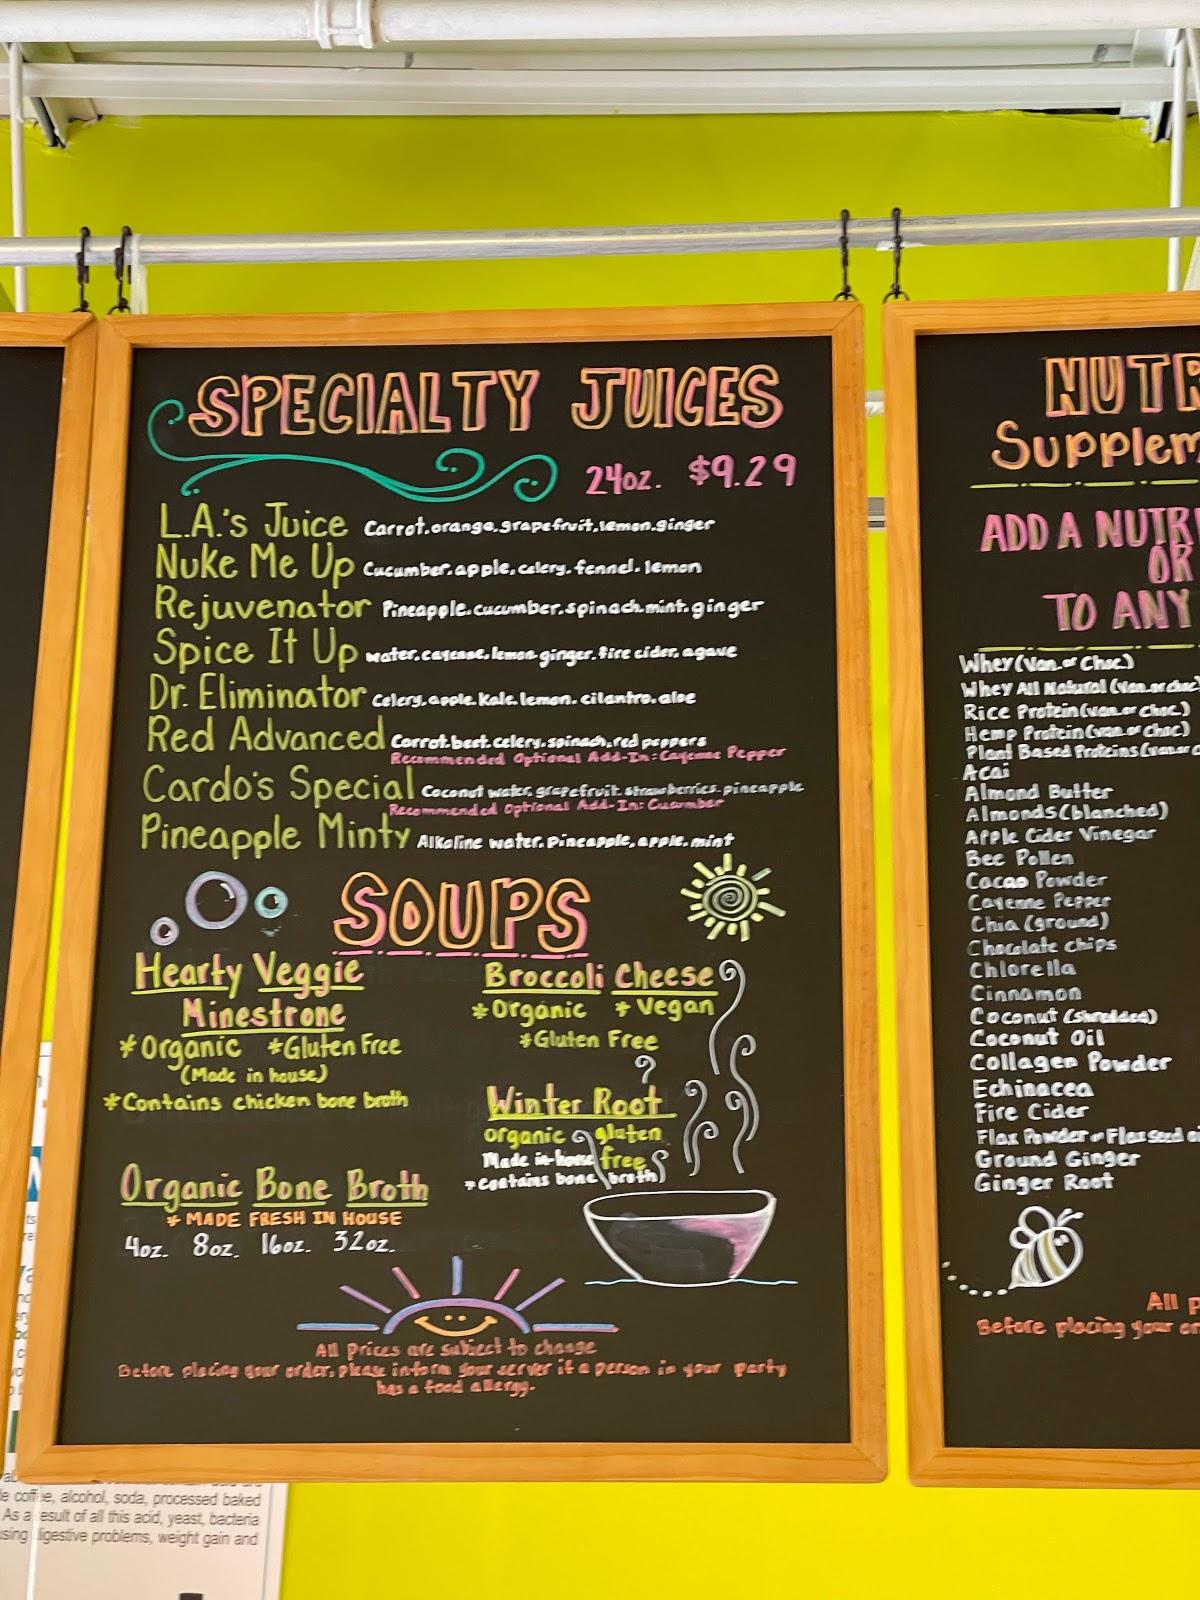 SPECIALTY JUICES
24oz. $9.29
L.A.'s Juice Carrot, orange, grapefruit, lemon, ginger
Nuke Me Up Cucumber, apple, celery, fennel, lemon
Rejuvenator Pineapple, cucumber, spinach, mint, ginger
Spice It Up water, cayenne, lemon, ginger, fire cider, agave
Dr. Eliminator Celery, apple, Kale, lemon, cilantro, aloe
Red Advanced Carrot, beet, celery, spinach, red peppers
Recommended Optional Add-In: Cayenne Pepper
Cardo's Special Coconut water, grapefruit, strawberries, pineapple
Recommended Optional Add-In: Cucumber
Pineapple Minty Alkaline water, Pineapple, apple, mint
SOUPS
Hearty Veggie
Minestrone
*Organic *Gluten Free
(Made in house)
*Contains chicken bone broth
Broccoli Cheese
*Organic *Vegan
*Gluten Free
Winter Root
organic gluten
Made in-house free
*contains bone broth
Organic Bone Broth
* MADE FRESH IN HOUSE
4oz. 8oz. 16oz. 32oz.
All Prices are subject to change
Before placing your order, please inform your server if a person in your party
has a food allergy.
NUTR
Supplem
ADD A NUTRI
OR
TO ANY
Whey (Van. or Choc.)
Whey All Natural (Van. or choc
Rice Protein (van. or choc.)
Hemp Protein (van. or choc)
Plant Based Proteins (van. or c
Acai
Almond Butter
Almonds (blanched)
Apple Cider Vinegar
Bee Pollen
Cacao Powder
Cayenne Pepper
Chia (ground)
Chocolate chips
Chlorella
Cinnamon
Coconut (shredded)
Coconut Oil
Collagen Powder
Echinacea
Fire Cider
Flax Powder or Flax seed oi
Ground Ginger
Ginger Root
All p
Before placing your or
le coffee, alcohol, soda, processed baked
As a result of all this acid, yeast, bacteria
using digestive problems, weight gain and